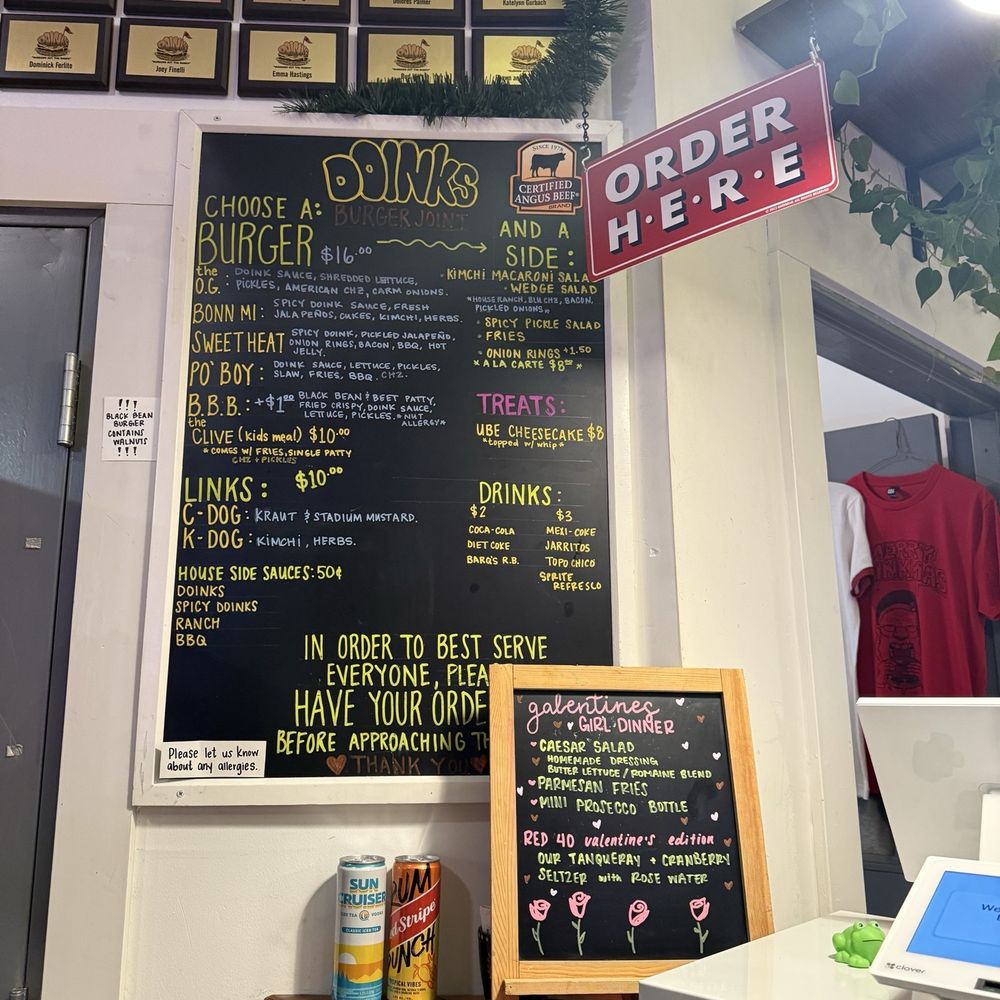 Dolores Palmer
Katelynn Gurbach
Dominick Ferlite
Joey Finelli
Emma Hastings
DOINKS
BURGER JOINT
SINCE 1978
CERTIFIED
ANGUS BEEF®
BRAND
ORDER
H·E·R·E
CHOOSE A:
BURGER $16.00
the
O.G.: DOINK SAUCE, SHREDDED LETTUCE,
PICKLES, AMERICAN CHZ, CARM ONIONS.
BONN MI: SPICY DOINK SAUCE, FRESH
JALAPEÑOS, CUKES, KIMCHI, HERBS.
SWEET HEAT SPICY DOINK, PICKLED JALAPEÑO,
ONION RINGS, BACON, BBQ, HOT
JELLY.
PO' BOY: DOINK SAUCE, LETTUCE, PICKLES,
SLAW, FRIES, BBQ. CHZ.
B.B.B.: +$1.00 BLACK BEAN & BEET PATTY,
FRIED CRISPY, DOINK SAUCE,
LETTUCE, PICKLES. *NUT
ALLERGY*
the
CLIVE (kids meal) $10.00
*COMES W/ FRIES, SINGLE PATTY
CHZ + PICKLES
AND A
SIDE:
·KIMCHI MACARONI SALA
·WEDGE SALAD
*HOUSE RANCH, BLU CHZ, BACON,
PICKLED ONIONS*
·SPICY PICKLE SALAD
·FRIES
·ONION RINGS +1.50
*A LA CARTE $8.00*
TREATS:
UBE CHEESECAKE $8
*topped w/ whip*
LINKS: $10.00
C-DOG: KRAUT & STADIUM MUSTARD.
K-DOG: KIMCHI, HERBS.
DRINKS:
$2
COCA-COLA
DIET COKE
BARQ'S R.B.
$3
MEXI-COKE
JARRITOS
TOPO CHICO
SPRITE
REFRESCO
HOUSE SIDE SAUCES: 50¢
DOINKS
SPICY DOINKS
RANCH
BBQ
IN ORDER TO BEST SERVE
EVERYONE, PLEA
HAVE YOUR ORDE
BEFORE APPROACHING TH
THANK YOU
!!!
BLACK BEAN
BURGER
CONTAINS
WALNUTS
!!!
Please let us know
about any allergies.
galentines
GIRL DINNER
·CAESAR SALAD
HOMEMADE DRESSING
BUTTER LETTUCE / ROMAINE BLEND
·PARMESAN FRIES
·MINI PROSECCO BOTTLE
RED 40 valentine's edition
OUR TANQUERAY + CRANBERRY
SELTZER with ROSE WATER
SUN
CRUISER
ICED TEA VODKA
CLASSIC ICED TEA
RUM
d Stripe
PUNCH
TROPICAL VIBES
MERRY
We
clover